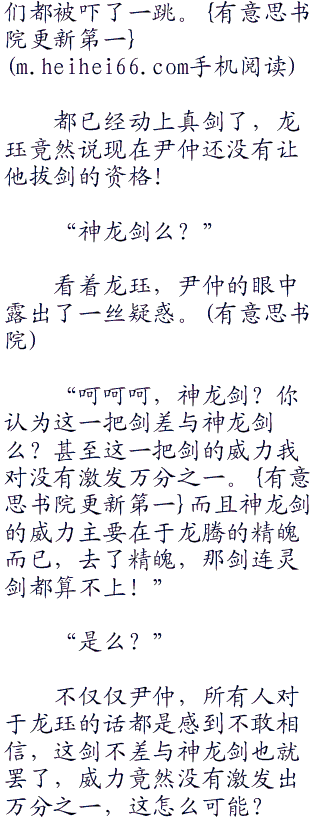 们都被吓了一跳。{有意思书
院更新第一}
(m.heihei66.com手机阅读)
都已经动上真剑了，龙
珏竟然说现在尹仲还没有让
他拔剑的资格！
“神龙剑么？”
看着龙珏，尹仲的眼中
露出了一丝疑惑。(有意思书
院)
“呵呵呵，神龙剑？你
认为这一把剑差与神龙剑
么？甚至这一把剑的威力我
对没有激发万分之一。{有意
思书院更新第一}而且神龙剑
的威力主要在于龙腾的精魄
而已，去了精魄，那剑连灵
剑都算不上！”
“是么？”
不仅仅尹仲，所有人对
于龙珏的话都是感到不敢相
信，这剑不差与神龙剑也就
罢了，威力竟然没有激发出
万分之一，这怎么可能？